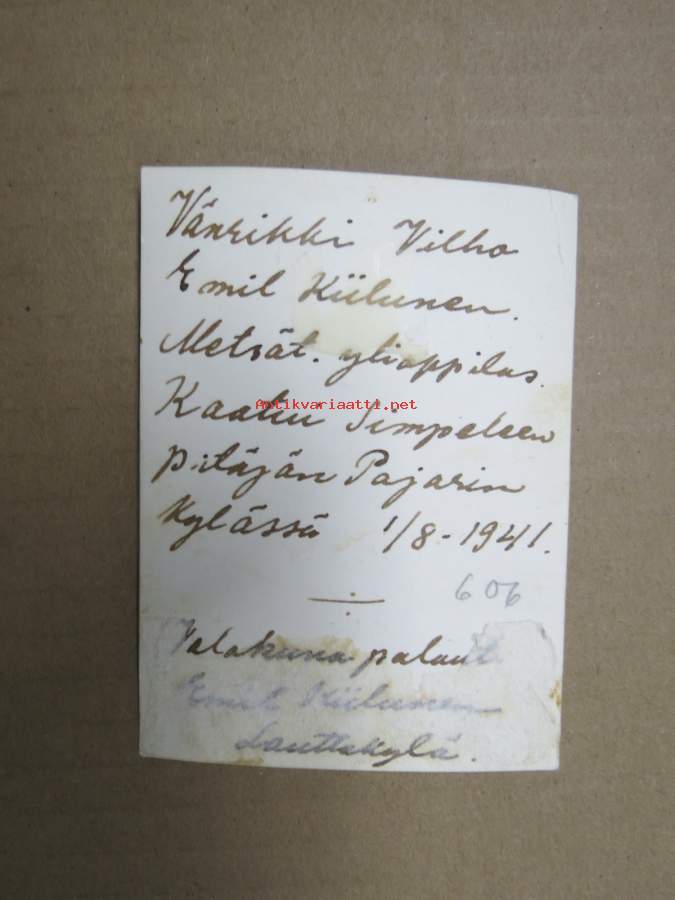 Vänrikki Vilho
Emil Kiilunen.
Metsät. ylioppilas.
Kaatui Simpeleen
Antikvariaatti.net
pitäjän Pajarin
kylässä 1/8-1941.
606
Valokuva palaut.
Emil Kiilunen
Lauttakylä.